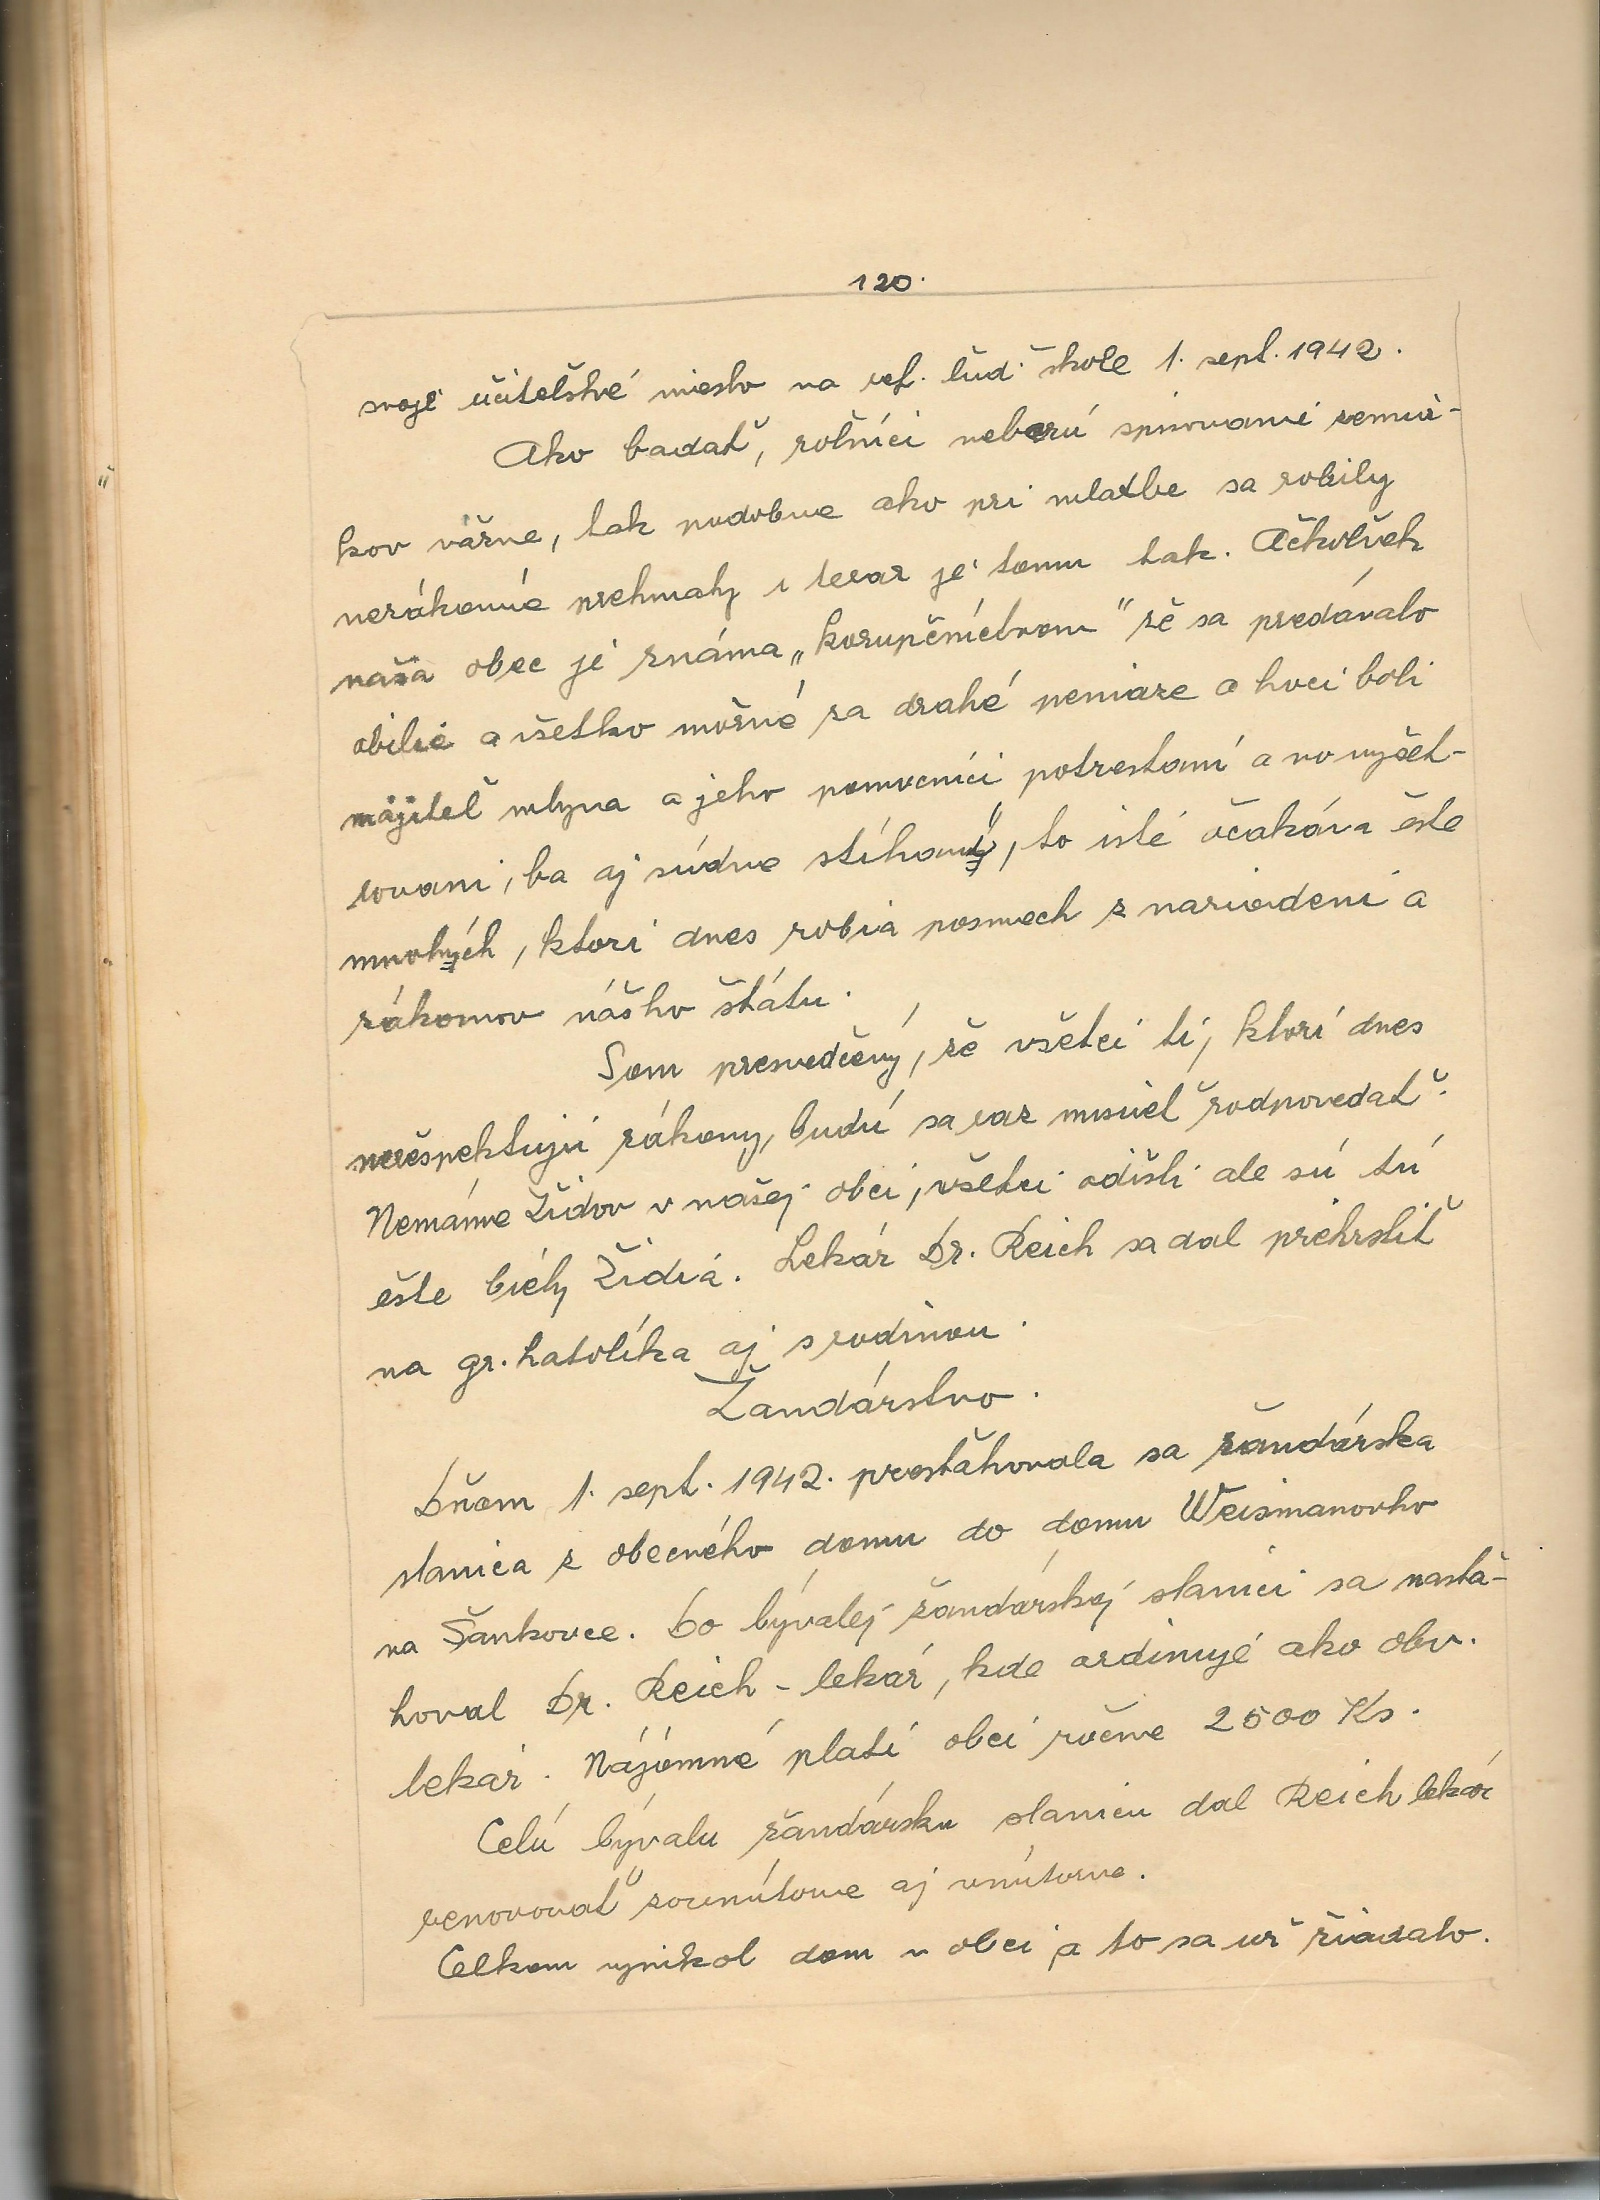 120.
svoje učitelské miesto na ref. ľud. škole 1. sept. 1942.
Ako badať, roľníci neberú spisovanie zemia-
kov vážne, tak podobne ako pri mlatbe sa robily
nezákonné prehmaty i teraz je tomu tak. Ačkolvek
naša obec je známa „korupčníctvom" že sa predávalo
obilie a všetko možné za drahé peniaze a hoci boli
májiteľ mlyna a jeho pomocníci potrestaní a vo vyšet-
rovaní, ba aj súdne stíhaný, to isté očakáva ešte
mnohých, ktorí dnes robia posmech z nariadení a
zákonov nášho štátu.
Som presvedčený, že všetci tí, ktorí dnes
nerešpektujú zákony, budú sa raz musieť zodpovedať.
Nemáme Židov v našej obci, všetci odišli ale sú tú
ešte biely Židia. Lekár Dr. Reich sa dal prekrstiť
na gr. katolíka aj s rodinou.
Žandárstvo.
Dňom 1. sept. 1942. presťahovala sa žandárska
stanica z obecného domu do domu Weismanovho
na Šankovce. Do bývalej žandárskej stanici sa nasťa-
hoval Dr. Reich - lekár, kde ordinuje ako obv.
lekár. Nájomné platí obci ročne 2500 Ks.
Celú bývalu žandársku stanicu dal Reich lekár
renovovať zovnútorne aj vnútorne.
Celkom vynikol dom v obci a to sa už žiadalo.